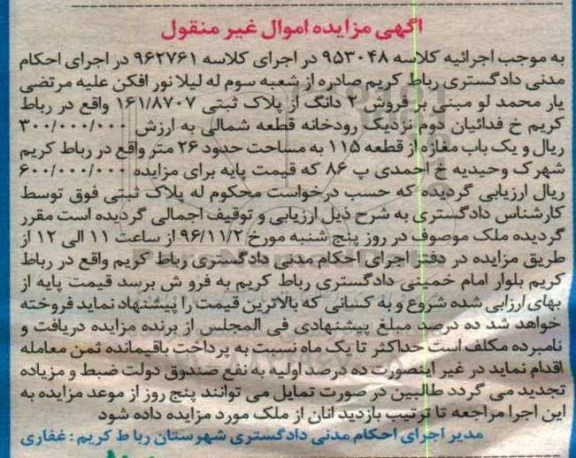 آگهی مزایده اموال غیر منقول
به موجب اجرائیه کلاسه ۹۵۳۰۴۸ در اجرای کلاسه ۹۶۲۷۶۱ در اجرای احکام
مدنی دادگستری رباط کریم صادره از شعبه سوم له لیلا نور افکن علیه مرتضی
یار محمد لو مبنی بر فروش ۲ دانگ از پلاک ثبتی ۱۶۱/۸۷۰۷ واقع در رباط
کریم خ فدائیان دوم نزدیک رودخانه قطعه شمالی به ارزش ۳۰۰/۰۰۰/۰۰۰
ریال و یک باب مغازه از قطعه ۱۱۵ به مساحت حدود ۲۶ متر واقع در رباط کریم
شهرک وحیدیه خ احمدی پ ۸۶ که قیمت پایه برای مزایده ۶۰۰/۰۰۰/۰۰۰
ریال ارزیابی گردیده که حسب درخواست محکوم له پلاک ثبتی فوق توسط
کارشناس دادگستری به شرح ذیل ارزیابی و توقیف اجمالی گردیده است مقرر
گردیده ملک موصوف در روز پنج شنبه مورخ ۹۶/۱۱/۲ از ساعت ۱۱ الی ۱۲ از
طریق مزایده در دفتر اجرای احکام مدنی دادگستری رباط کریم واقع در رباط
کریم بلوار امام خمینی دادگستری رباط کریم به فرو ش برسد قیمت پایه از
بهای ارزابی شده شروع و به کسانی که بالاترین قیمت را پیشنهاد نماید فروخته
خواهد شد ده درصد مبلغ پیشنهادی فی المجلس از برنده مزایده دریافت و
نامبرده مکلف است حداکثر تا یک ماه نسبت به پرداخت باقیمانده ثمن معامله
اقدام نماید در غیر اینصورت ده درصد اولیه به نفع صندوق دولت ضبط و مزیاده
تجدید می گردد طالبین در صورت تمایل می توانند پنج روز از موعد مزایده به
این اجرا مراجعه تا ترتیب بازدید انان از ملک مورد مزایده داده شود
مدیر اجرای احکام مدنی دادگستری شهرستان ربا ط کریم : غفاری